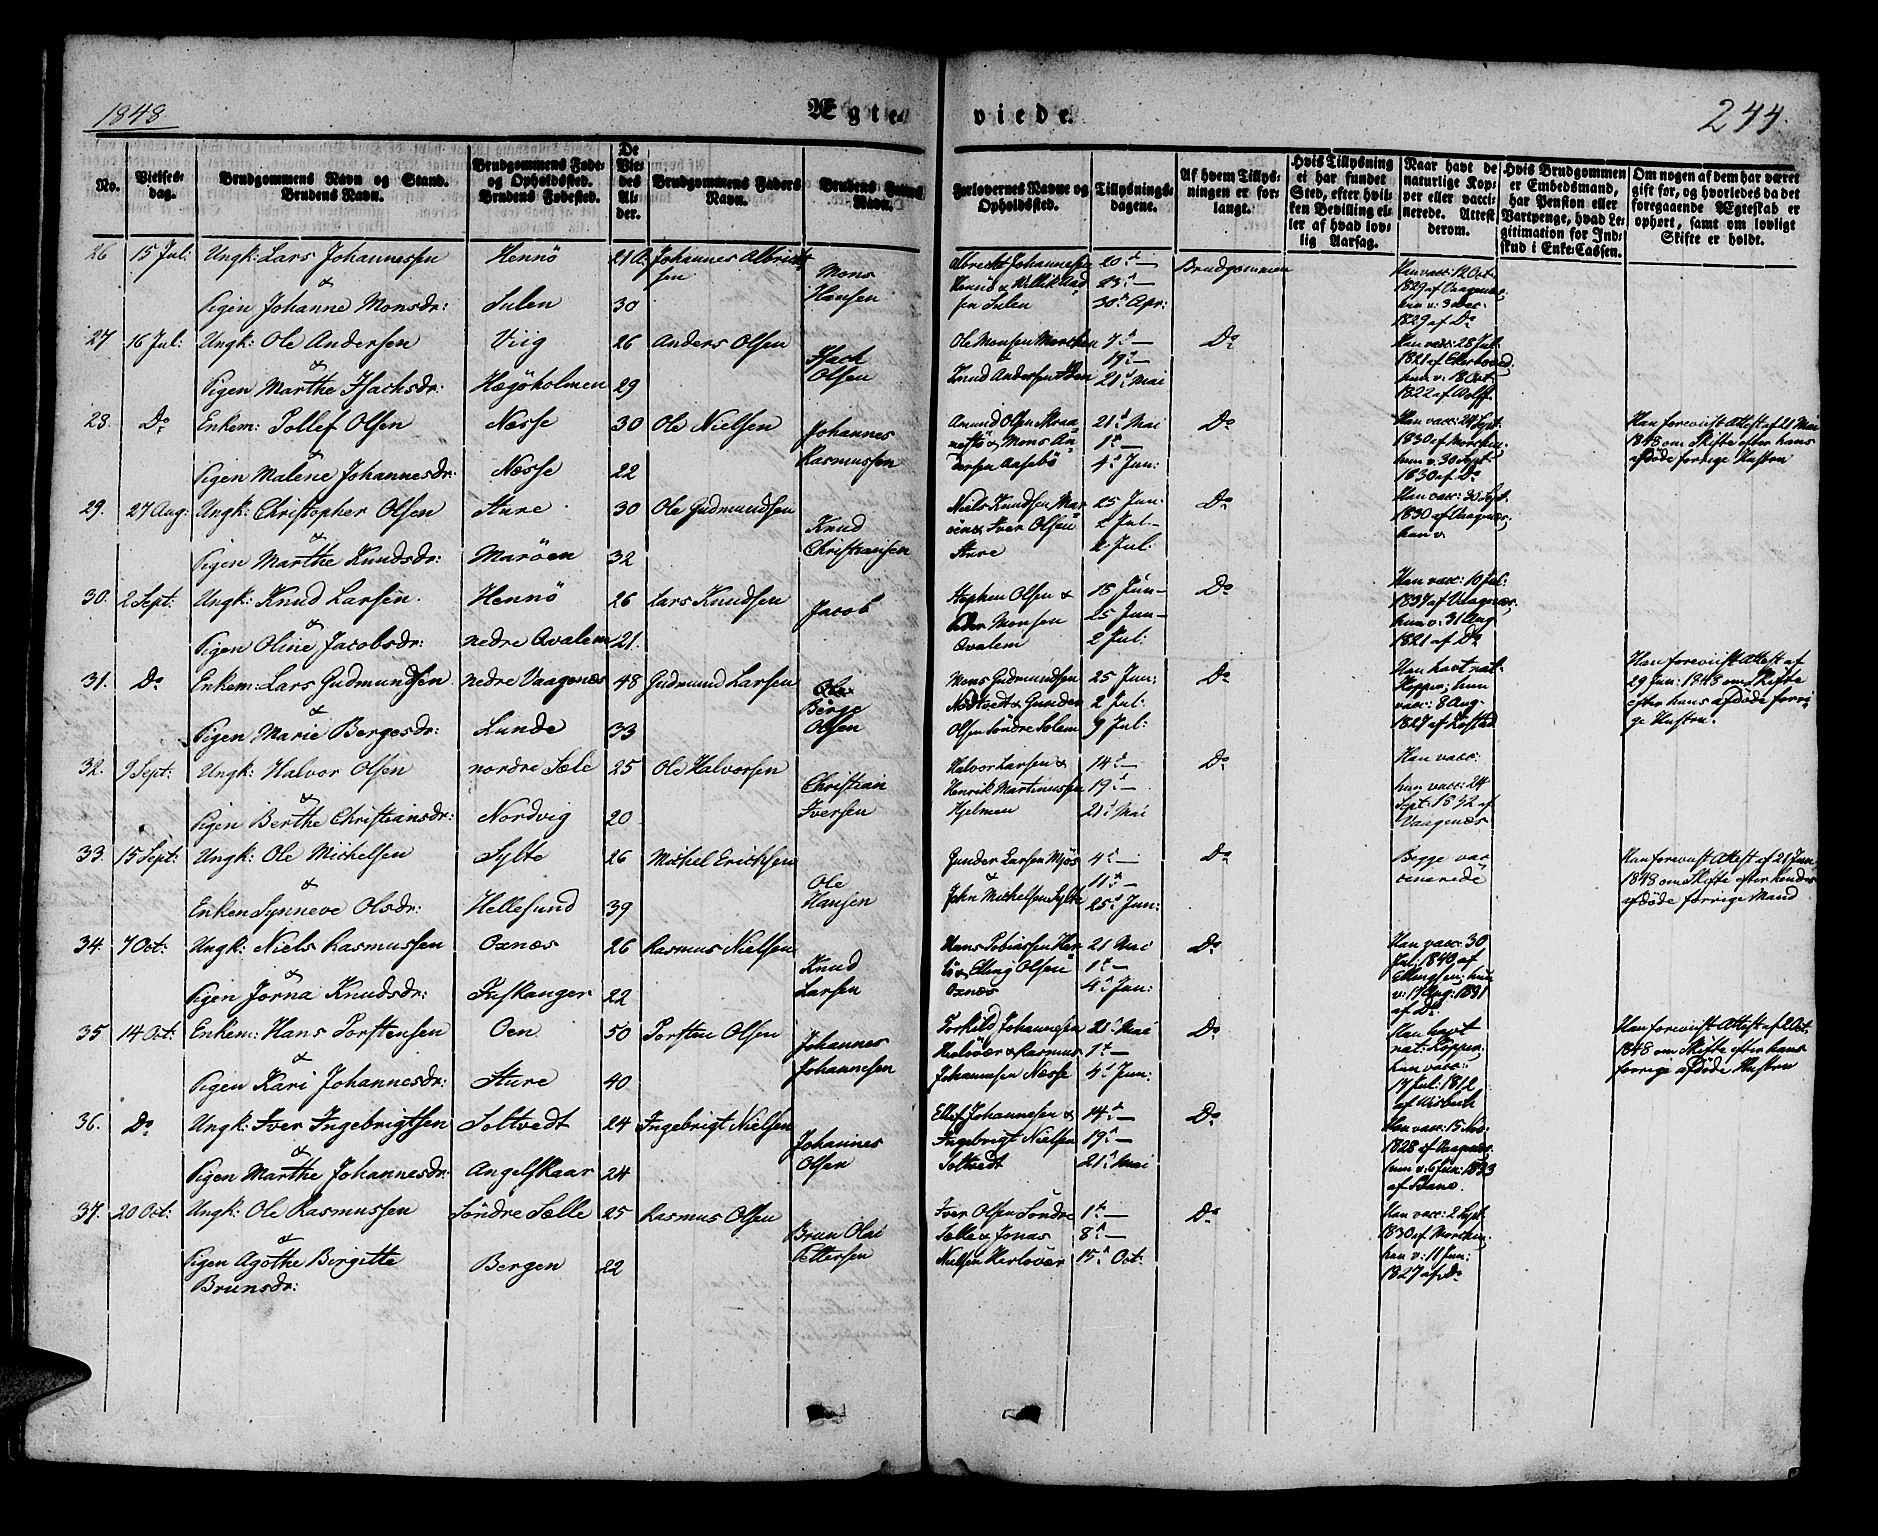 1848 Ægte viede. 244.
No. Vielses-dag. Brudgommens Navn og Stand. Brudens Navn. Brudgommens Føde- og Opholdssted. Brudens Fødested. De Vie-des Al-der. Brudgommens Faders Navn. Brudens Faders Navn. Forlovernes Navne og Opholdssted. Tillysnings-dagene. Af hvem Tillys-ningen er for-langt. Hvis Tillysning ei har fundet Sted, efter hvil-ken Bevilling el-ler af hvad lov-lig Aarsag. Naar havt de naturlige Kop-per eller vacci-nerede. Attest derom. Hvis Brudgommen er Embedsmand, har Pension eller Vartpenge, hvad Le-gitimation for Ind-skud i Enke-Cassen. Om nogen af dem har været gift før, og hvorledes da det foregaaende Ægteskab er ophørt, samt om lovligt Skifte er holdt.
26 15 Jul: Ungk: Lars Johannessen Hennö 21 A. Johannes Albrigt Albrecht Johannesen 20de — Brudgommen Han vacc: 12 Oct
& sen Mons Hennö & 23de — 1829 af Vaagenæs,
Pigen Johanne Monsdr: Sulen 30 Hansen sen Sulen 30te Apr: hun v: 3 Dec:
1829 af Do
27 16 Jul: Ungk: Ole Andersen Viig 26 Anders Olsen Ole Monsen 7de — Do Han vacc: 28 Jul:
& Isach & 19de — 1821 af
Pigen Marthe Isachsdr: Hægöholmen 29 Olsen Knud Andersen 21de Mai hun v: 18 Oct:
1822 af Wolff
28. Do Enkem: Tollef Olsen Nesse 30 Ole Nielsen Amund Olsen 21de Mai Do Han vacc: 24 Sept Han foreviist Attest af 21 Mai
Johannes & Mons An- 1te — 1830 af 1848 om Skifte efter hans
Pigen Malene Johannesdr: Nesse 22 Rasmussen dersen Aasebö 4de Jun: hun v: 30 Sept afdöde forrige Hustru
1830 af Do
29. 27 Aug: Ungk: Christopher Olsen Sture 30 Ole Gudmundsen Niels Knudsen Mar- 25 Jun: Do Han vacc: 30 Sept.
& Knud öen & Iver Olsen 2 Jul — 1830 af Vaagnæs,
Pigen Marthe Knudsdr: Maröen 32 Christiansen Sture 2 Jul: hun v.
30. 2 Sept: Ungk: Knud Larsen. Hennö 26 Lars Knudsen Stephen Olsen & 18 Jun — Do Han vacc: 10 Jul:
& Jacob Peder Monsen 25 Jun — 1837 af Vaagnæs,
Pigen Oline Jacobsdr: nedre Qvalem 21. Qvalem 2 Jul: hun v: 31 Aug
1821 af Do
31. Do Enkem: Lars Gudmundsen nedre Vaagenæs 48 Gudmund Larsen Mons Gudmundsen 25 Jun: Do Han havt nat: Han foreviist Attest af
& Börge Nödtvedt & Gunder 2 Jul: Kopper, hun 29 Jun: 1848 om Skifte
Pigen Marie Bergesdr: Lunde 33 Olsen Olsen Söndre Solem 9 Jul: vacc: 8 Aug: efter hans afdöde forri-
1827 af ge Hustru.
32. 9 Sept: Ungk: Halvor Olsen nordre Sæle 25 Ole Halvorsen Halvor Larsen & 14de — Do Han vacc:
& Christian Henrik Martinussen 19de — hun vacc: 24
Pigen Berthe Christiansdr: Nordvig 20 Iversen Hjelmen 21de Mai Sept: 1832 af
Vaagenæs
33. 15 Sept: Ungk: Ole Michelsen Sylte 26 Michel Erichsen Gunder Larsen Myös 4de — Do Begge vac Han foreviist Attest af 21 Jun
& Ole & 11te — cinerede 1848 om Skifte efter hendes
Enken Synneve Olsdr: Hellesund 39 Hansen John Michelsen Sylte 25de Jun: afdöde forrige Mand
34. 7 Oct: Ungk: Niels Rasmussen Oxnæs 26 Rasmus Nielsen Hans Tobiassen Her- 21 Mai Do Han vacc: 30
& Knud lö & Elling Olsen 1te — Jul: 1840 af
Pigen Jorna Knudsdr: 22 Larsen Oxnæs 4de Jun: Ellingsen, hun
v: 17 Aug: 1831
af Do
35 14 Oct: Enkem: Hans Torstensen Oen 50 Torsten Olsen Torkild Johannesen 21de Mai Do Han havt Han foreviist Attest af 2 Oct
& Johannes Herlövær & Rasmus 1te — nat: Kopper, 1848 om Skifte efter hans
Pigen Kari Johannesdr: Sture 40 Johannesen Johannesen Nesse 4de Jun: hun vacc: forrige afdöde Hustru
17 Jul: 1812
af
36. Do Ungk: Iver Ingebrigtsen Soltvedt 24 Ingebrigt Nielsen Ellef Johannesen & 14de — Do Han vacc: 15 Nov:
& Johannes Ingebrigt Nielsen 19de — 1828 af Vaagnæs,
Pigen Marthe Johannesdr: Angelskaar 24 Olsen Soltvedt 21de Mai hun v: 6 Jun: 1833
af
37. 20 Oct: Ungk: Ole Rasmussen Söndre Sælle 25 Rasmus Olsen Iver Olsen Söndre 1te — Do Han vacc: 2 Sept
& Brun Olai Sælle & Jonas 8de — 1830 af
Pigen Agothe Birgitte Bergen 22 Pettersen Nielsen Herlövær 15de Oct: hun v: 11 Jun:
Brunsdr: 1827 af Do